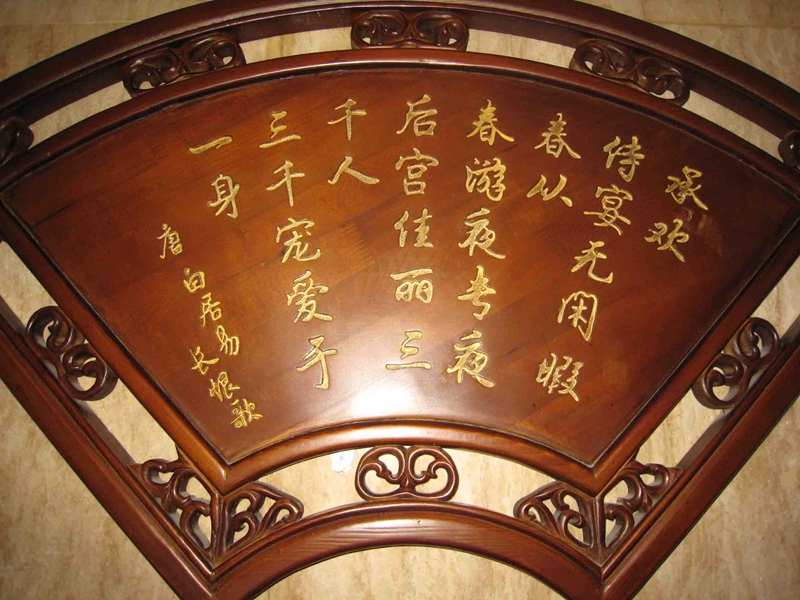 承欢
侍宴无闲暇
春从
春游夜专夜
后宫佳丽三
千人
三千宠爱于
一身
唐 白居易 长恨歌